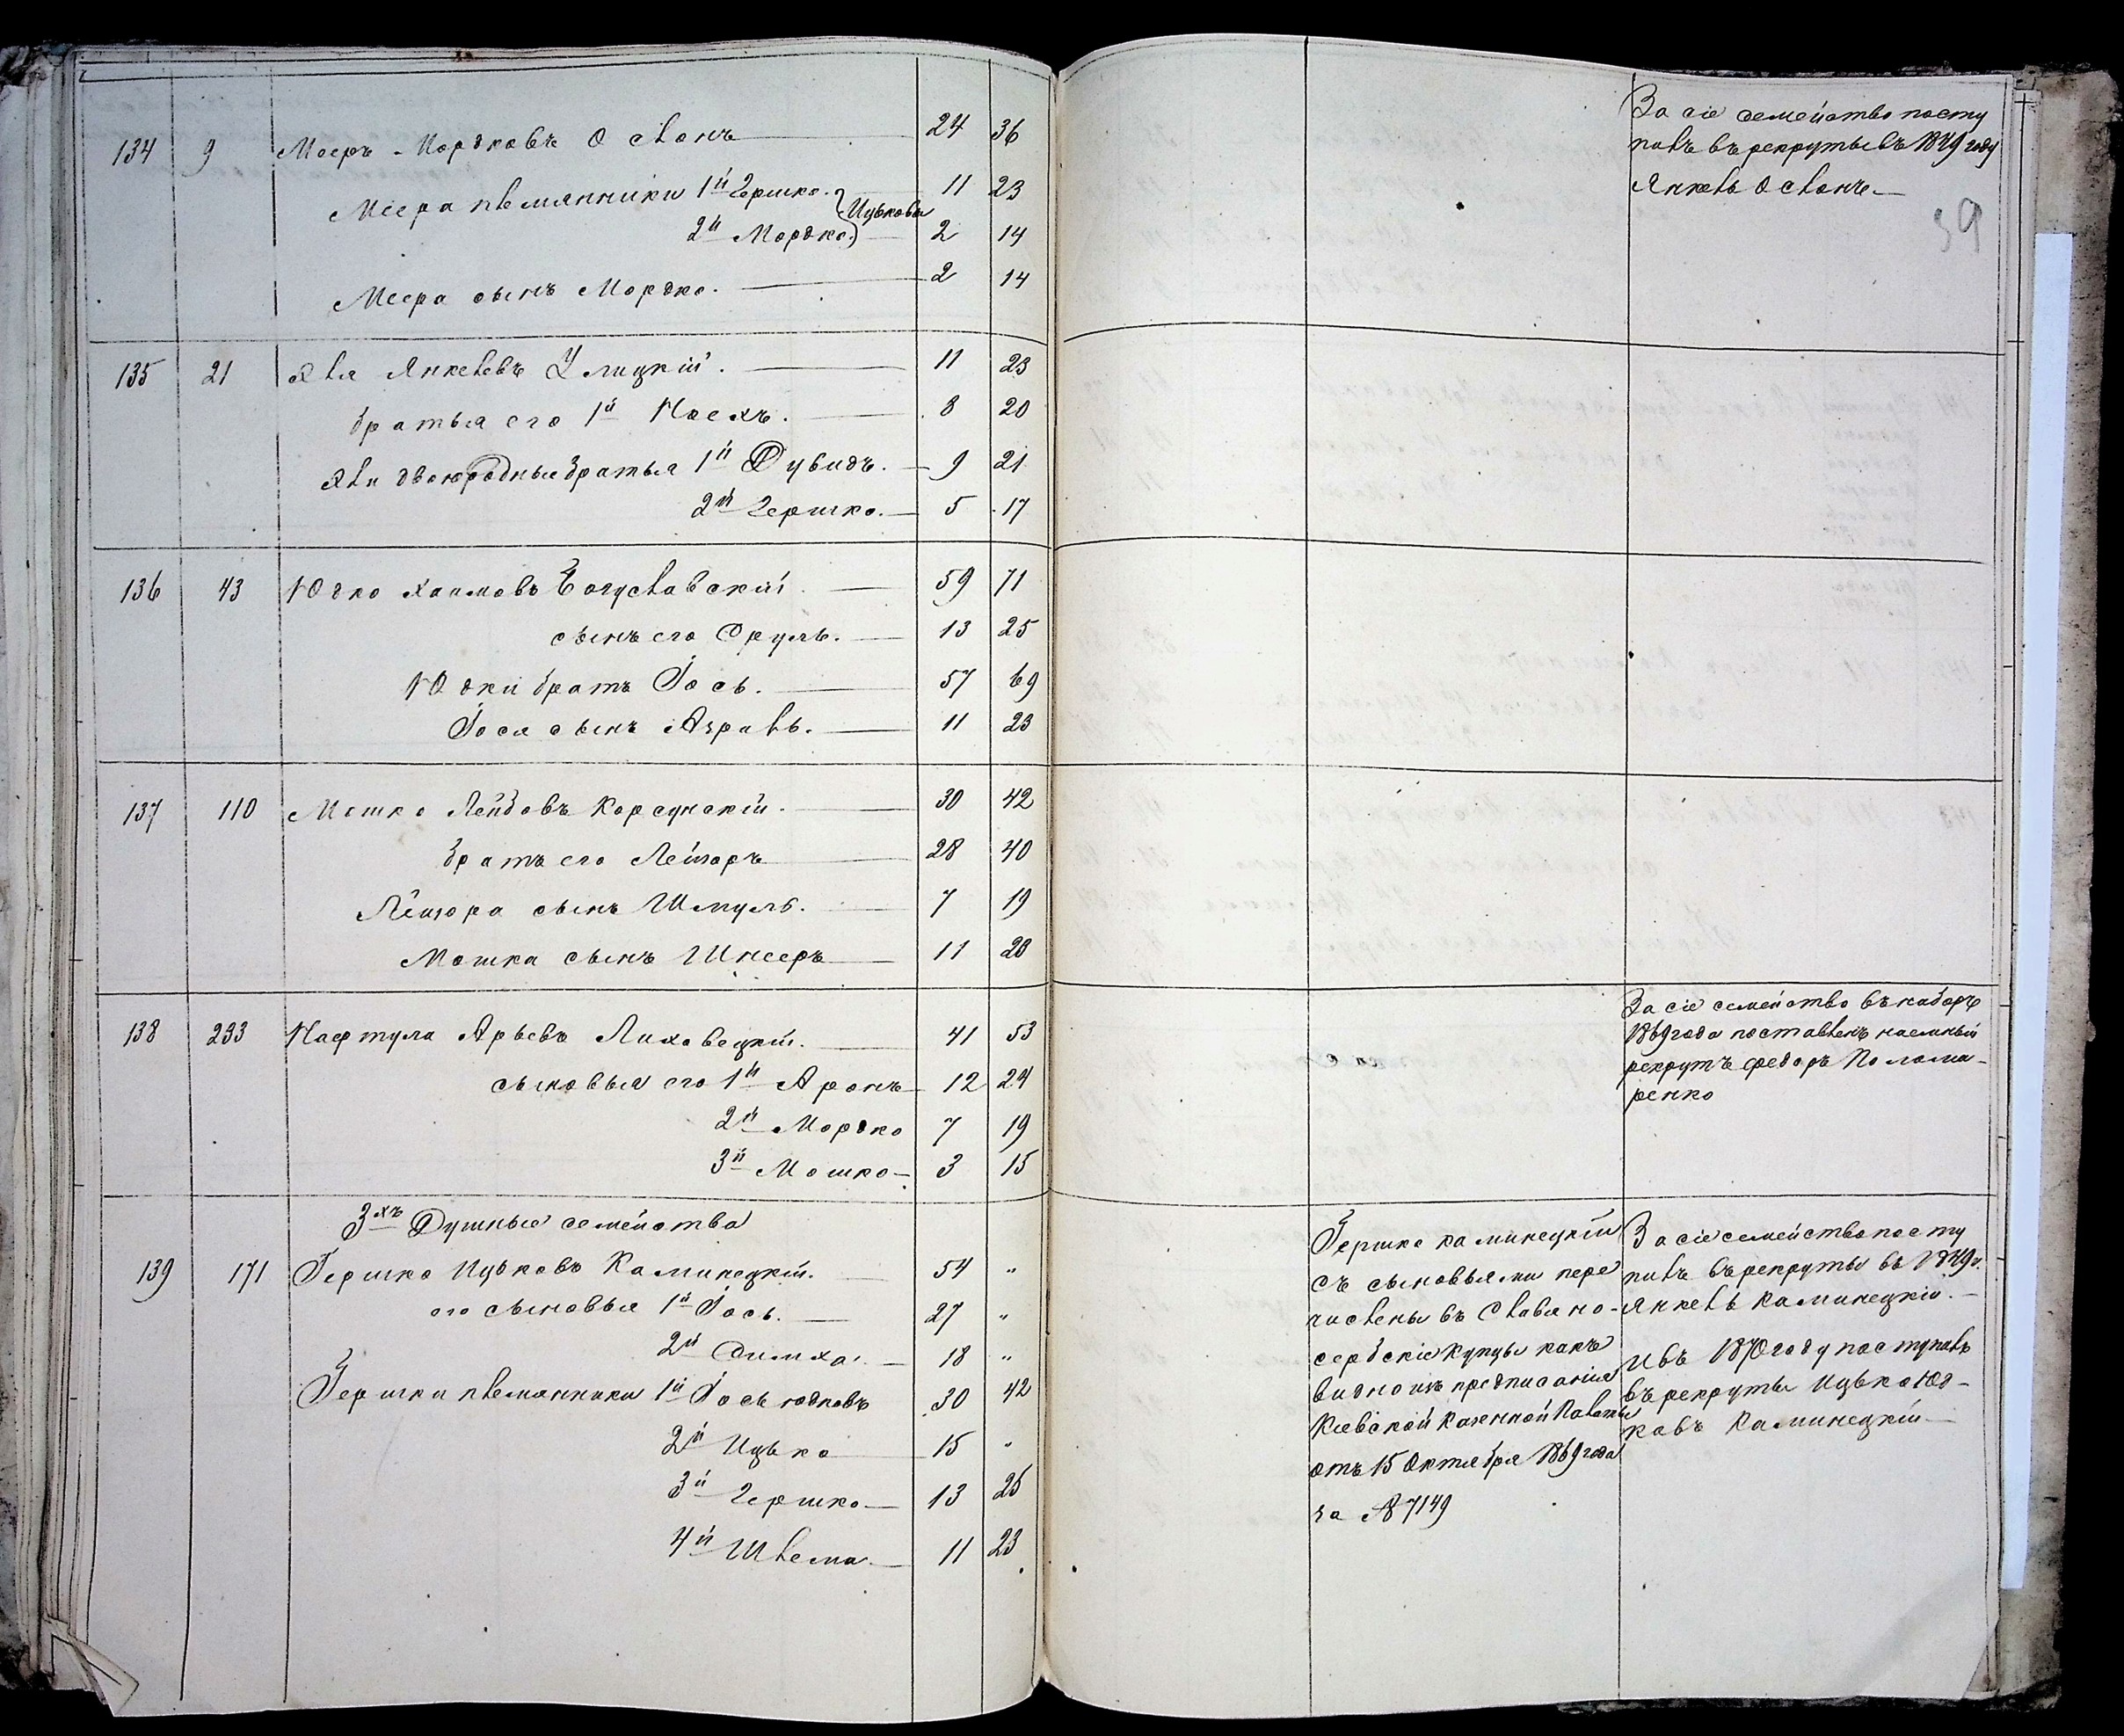 134 9 Мееръ Мордковъ Ослонъ 24 36
Меера племянники 1й Гершко 11 23
Ицьковы
2й Мордко 2 14
Меера сынъ Мордко. 2 14
135 21 Янкелевъ Улицкій. 11 23
братья его 1й 8 20
двоюродные братья 1й Дувидъ. 9 21
2й Гершко. 5 17
136 43 Юдко Хаимовъ Богуславскій 59 71
сынъ его Сруль. 13 25
Юдки братъ Іось. 57 69
Іося сынъ Азриль. 11 23
137 110 Мошко Лейбовъ Корсунскій. 30 42
братъ его Лейзоръ 28 40
Лейзора сынъ Шмуль. 7 19
Мошка сынъ Шнееръ 11 20
138 233 Нафтула Арьевъ Лиховецкій. 41 53
сыновья его 1й Аронъ 12 24
2й Мордко 7 19
3й Мошко 3 15
3хъ Душные семейства
139 171 Гершко Ицьковъ Каминецкій. 54 "
его сыновья 1й Іось. 27 "
2й Симха. 18 "
Гершки племянники 1й Іось Юдковъ 30 42
2й Ицько 15 "
3й Гершко 13 25
4й Шлема 11 23
За сіе семейство посту
пилъ въ рекруты въ 1849 году
Янкель Ослонъ
39
За сіе семейство въ наборъ
1869 года поставленъ наемный
рекрутъ Федоръ Полома-
ренко
Гершко Каминецкій
съ сыновьями пере
числены въ Славяно-
сербскіе купцы какъ
видно изъ предписанія
Кіевской Казенной Палаты
отъ 15 Октября 1869 года
за № 7149
За сіе семейство посту
пилъ въ рекруты въ 1849 г.
Янкель Каминецкій.
и въ 1870 году поступилъ
въ рекруты Ицько Юд-
ковъ Каминецкій